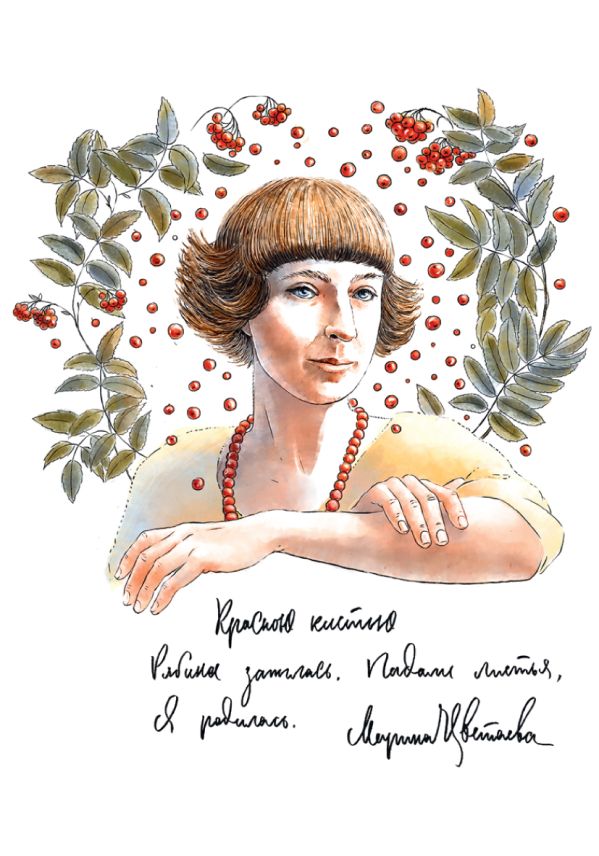 Красною кистью
Рябина зажглась. Падали листья,
Я родилась.
Марина Цветаева